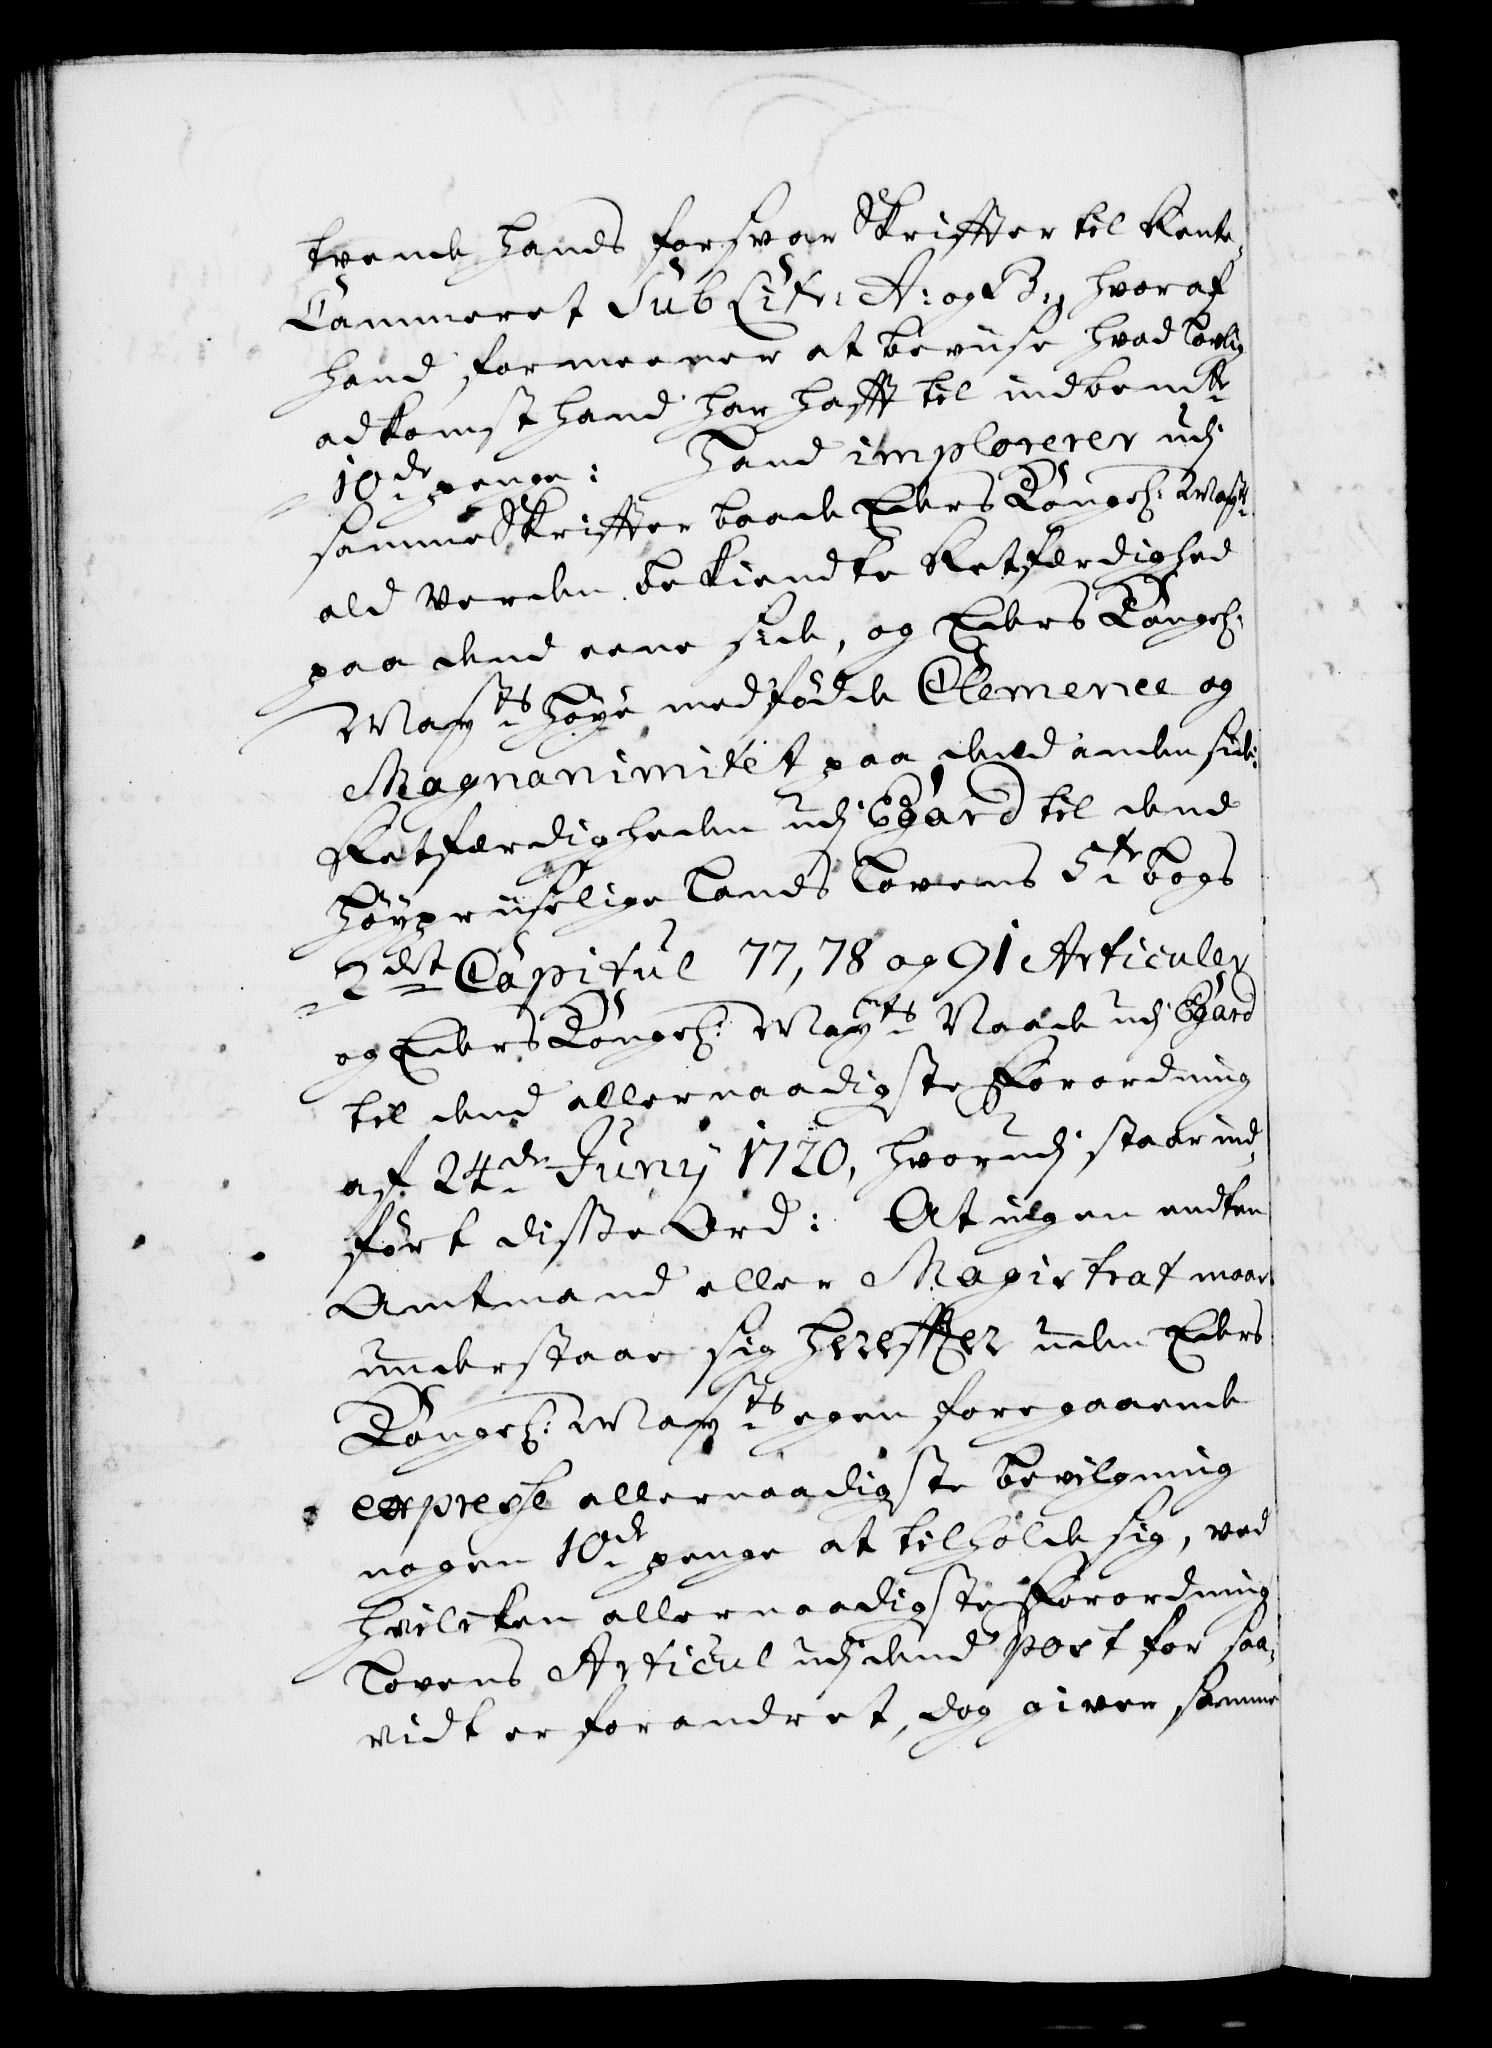 tvende hands forsvar Skriffter til Rente-
Cammeret Sub Litr: A: og B:, hvoraf
hand formeener at beviise hvad lovlig
adkomst hand har hafft til indbemte
10de penge: Hand imploterer udj
samme Skriffter baade Eders Kongel: Mayts
ald Verden bekiendte Retfærdighed
paa dend eene side, og Eders Kongel:
Mayts høye medfødde Clemence og
Magnanimitet paa dend anden side:
Retfærdigheden udj Egard til dend
høypriiselige Lands Lovens 5te bogs
2det Capitul 77, 78 og 91 Articuler
og Eders Kongel: Mayts Naade udj Egard
til dend allernaadigste Forordning
af 24de Junij 1720, hvorudj staar ind-
ført disse Ord: At ingen endten
Amtmand eller Magistrat maae
understaae sig hereffter uden Eders
Kongel: Mayts egen foregaaende
expresse allernaadigste bevilgning
nogen 10de penge at tilholde sig, ved
hvilcken allernaadigste Forordning
Lovens Articul udj dend post for saa-
vidt er forandret, dog giver samme